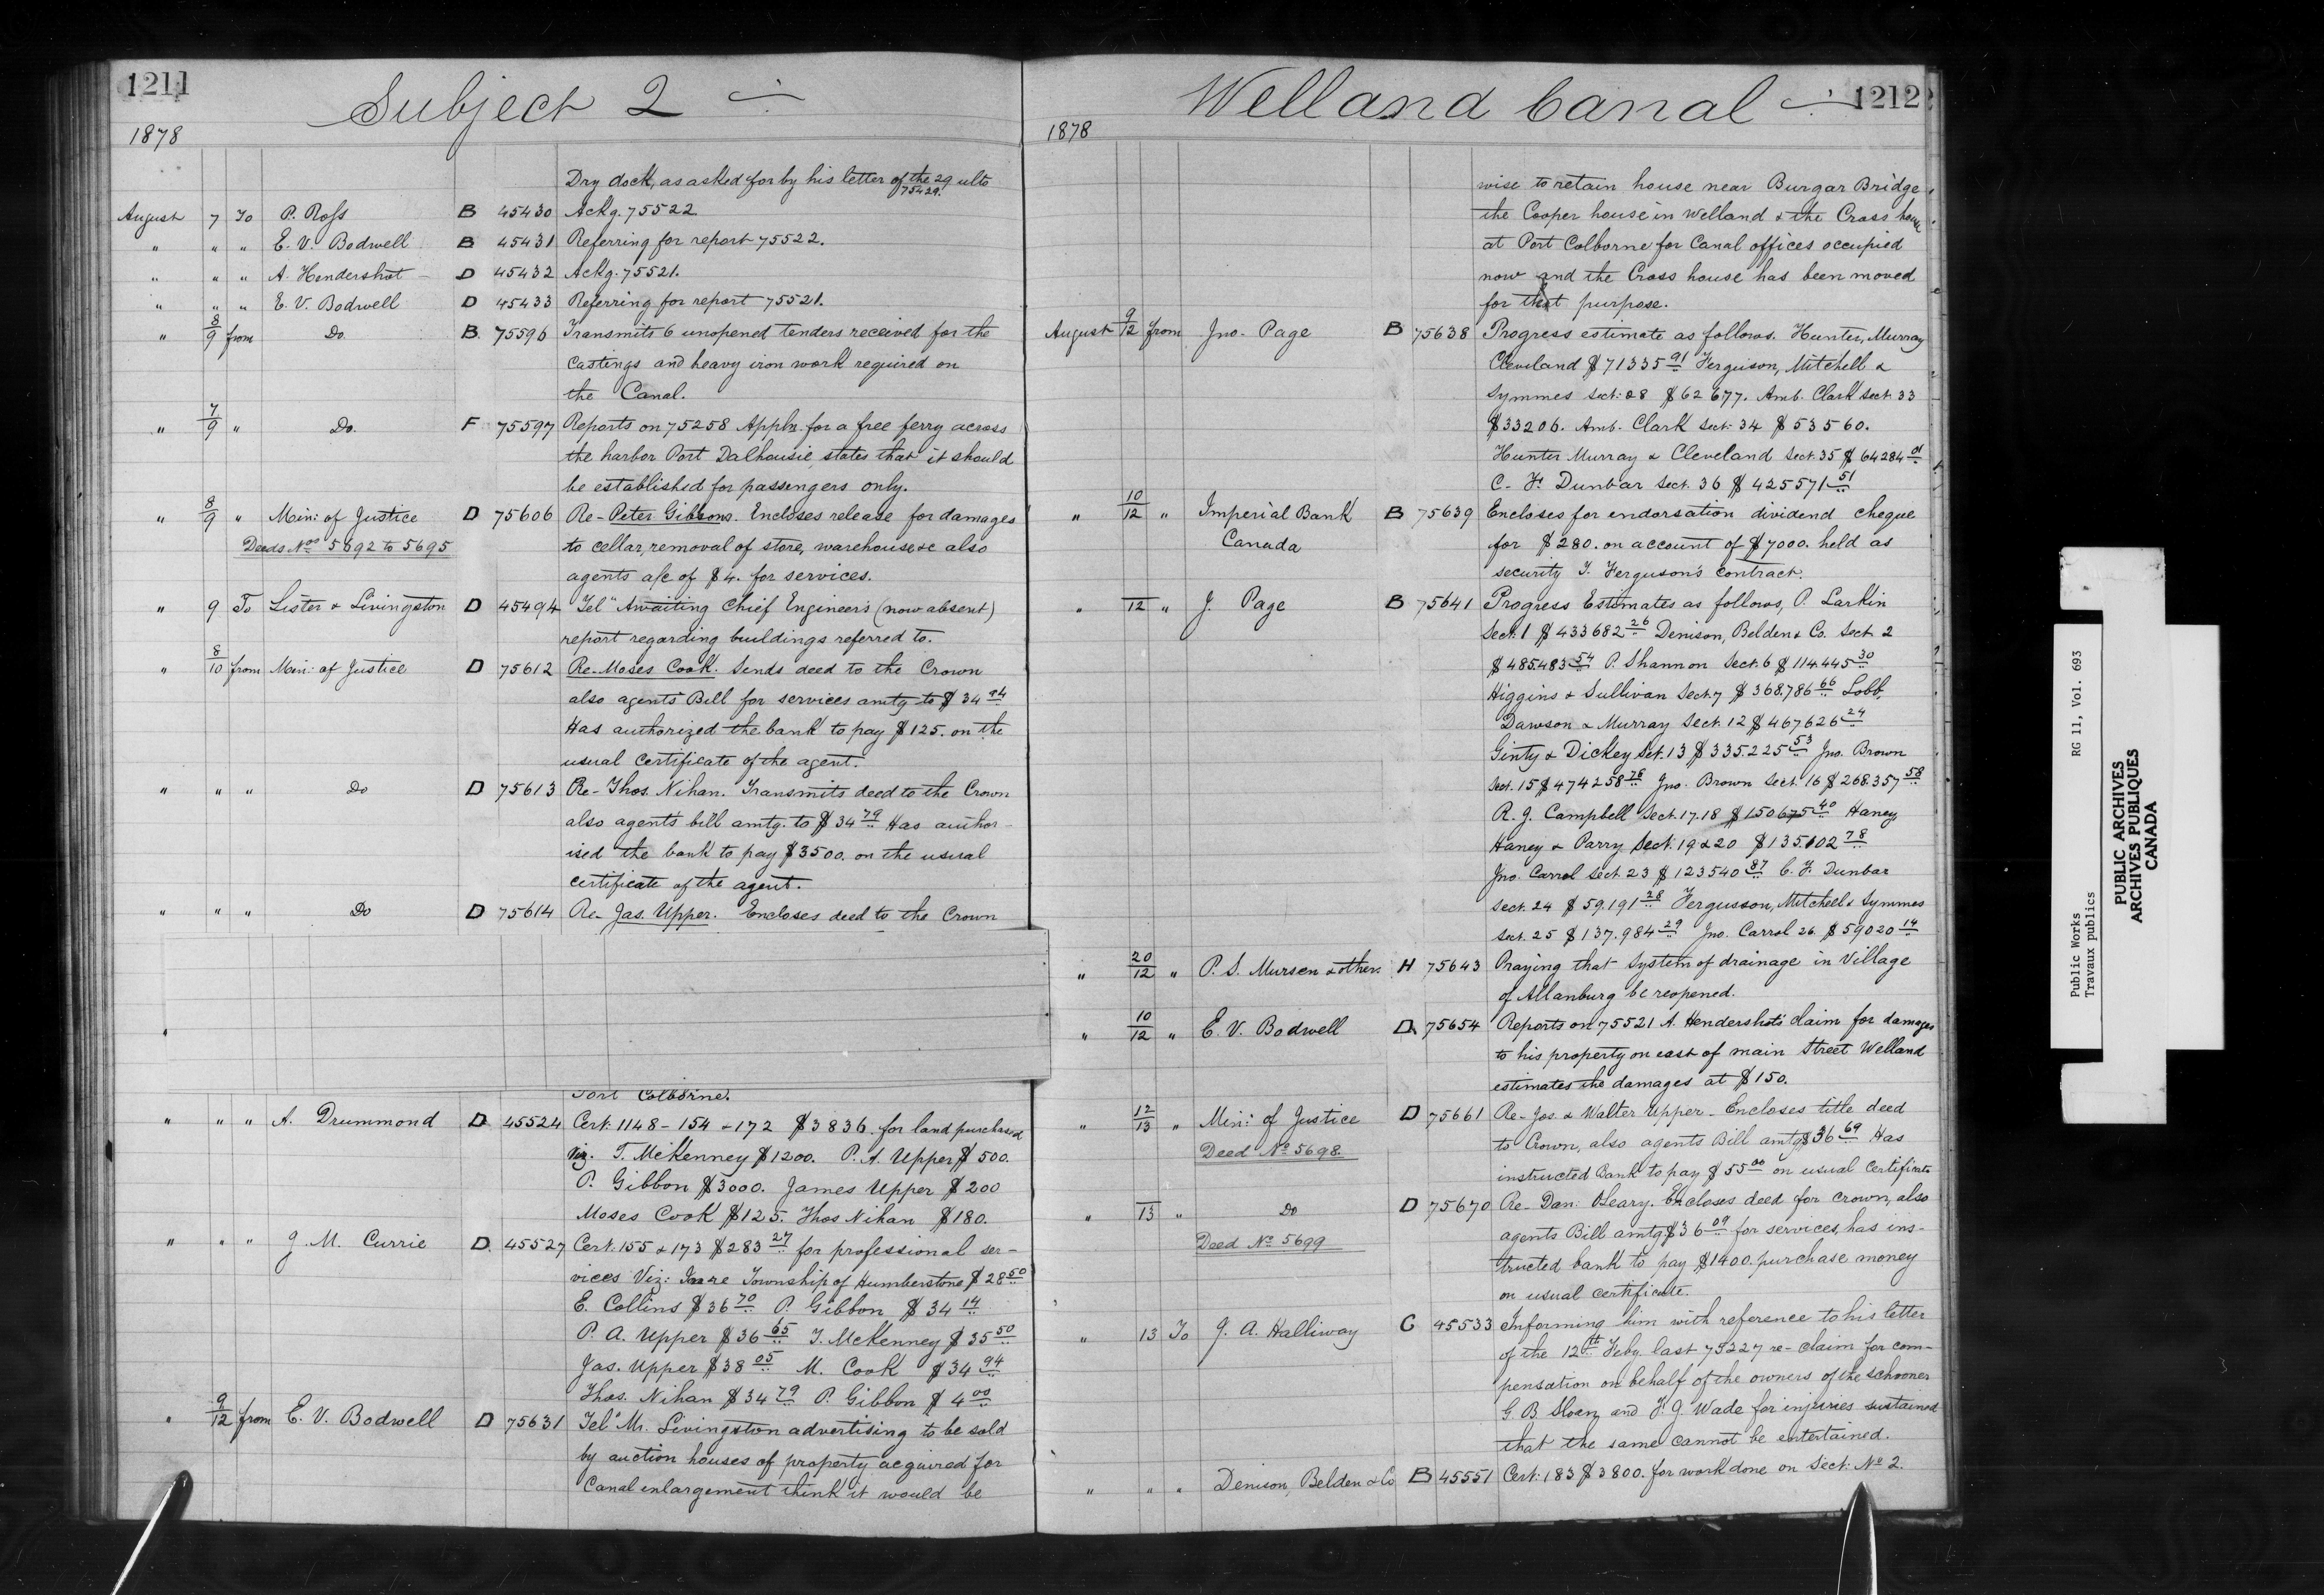 1211
Subject 2
1878
Dry dock, as asked for by his letter of the 29 ulto
75429.
August 7 To P. Ross B 45430 Ackg. 75522.
" " " E. V. Bodwell B 45431 Referring for report 75522.
" " " A. Hendershot D 45432 Ackg. 75521.
" " " E. V. Bodwell D 45433 Referring for report 75521.
" 8/9 from Do. B. 75596 Transmits 6 unopened tenders received for the
Castings and heavy iron work required on
the Canal.
" 7/9 " Do. F 75597 Reports on 75258 Appln. for a free ferry across
the harbor Port Dalhousie, states that it should
be established for passengers only.
" 8/9 " Min: of Justice D 75606 Re- Peter Gibsons. Encloses release for damages
Deeds Nos 5692 to 5695 to cellar, removal of store, warehouse &c also
agents a/c of $4. for services.
" 9 To Lister & Livingston D 45494 Tel" Awaiting Chief Engineer's (now absent)
report regarding buildings referred to.
" 8/10 from Min: of Justice D 75612 Re-Moses Cook. Sends deed to the Crown
also agents Bill for services amtg to $34 94
Has authorized the bank to pay $125. on the
usual certificate of the agent.
" " " Do D 75613 Re- Thos. Nihan. Transmits deed to the Crown
also agents bill amtg. to $34 79 Has author-
ised the bank to pay $3500. on the usual
certificate of the agent.
" " " Do D 75614 Re- Jas. Upper. Encloses deed to the Crown
Port Colborne.
" " " A. Drummond D 45524 Cert. 1148 - 154 - 172 $3836. for land purchased
Viz. T. McKenney $1200. P. A. Upper $500.
P. Gibbon $3000. James Upper $200
Moses Cook $125. Thos Nihan $180.
" " " J. M. Currie D. 45527 Cert. 155 & 173 $283 27 for professional ser-
vices Viz: In re Township of Humberstone, $28 50
E. Collins $36 70 P. Gibbon $34 14
P. A. Upper $36 65 T. McKenney $35 50
Jas. Upper $38 05 M. Cook $34 94
Thos. Nihan $34 79 P. Gibbon $4 00
" 9/12 from E. V. Bodwell D 75631 Tel" Mr. Livingston advertising to be sold
by auction houses of property acquired for
Canal enlargement think it would be
Welland Canal
1212
1878
wise to retain house near Burgar Bridge
the Cooper house in Welland & the Cross house
at Port Colborne for Canal offices occupied
now and the Cross house has been moved
for that purpose.
August 9/12 from Jno. Page B 75638 Progress estimate as follows. Hunter, Murray
Cleveland $71335 91 Ferguson, Mitchell &
Symmes Sect: 28 $62677. Amb. Clark Sect. 33
$33206. Amb. Clark Sect. 34 $53560.
Hunter Murray & Cleveland Sect. 35 $64284 01
C. F. Dunbar Sect. 36 $425571 51
" 10/12 " Imperial Bank B 75639 Encloses for endorsation dividend cheque
Canada for $280. on account of $7000. held as
security T. Ferguson's contract.
" 12 " J. Page B 75641 Progress Estimates as follows, P. Larkin
Sect. 1 $433682 26 Denison, Belden & Co. Sect. 2
$485.483 54 P. Shannon Sect. 6 $114.445 30
Higgins & Sullivan Sect. 7 $368.786 66 Lobb,
Dawson & Murray Sect. 12 $467626 24
Ginty & Dickey Sect. 13 $335.225 53 Jno. Brown
Sect. 15 $474258 78 Jno. Brown Sect. 16 $268.357 58
R. J. Campbell Sect. 17.18 $150675 40 Haney
Haney & Parry Sect. 19 & 20 $135.102 78
Jno. Carrol Sect. 23 $123540 87 C. F. Dunbar
Sect. 24 $59.191 28 Fergusson, Mitchell & Symmes
Sect. 25 $137.984 29 Jno. Carrol 26. $59020 14
" 20/12 " P. S. Mursen & others H 75643 Praying that System of drainage in Village
of Allanburg be reopened.
" 10/12 " E. V. Bodwell D 75654 Reports on 75521 A. Hendershot's claim for damages
to his property on east of main Street Welland
estimates the damages at $150.
" 12/13 " Min: of Justice D 75661 Re- Jos. & Walter Upper- Encloses title deed
Deed No 5698 to Crown, also agents Bill amtg $36 69 Has
instructed Bank to pay $55 00 on usual Certificate
" 13 " Do D 75670 Re- Dan. OLeary. Encloses deed for crown, also
Deed No 5699 agents Bill amtg. $36 09 for services, has ins-
tructed bank to pay $1400. purchase money
on usual certificate.
" 13 To J. A. Halliway C 45533 Informing him with reference to his letter
of the 12th Feby. last 75227 re- claim for com-
pensation on behalf of the owners of the schooner
G. B. Sloan and F. J. Wade for injuries sustained
that the same cannot be entertained.
" " " Denison, Belden & Co B 45551 Cert: 183 $3800. for work done on Sect: No 2.
Public Works RG 11, Vol. 693
Travaux publics
PUBLIC ARCHIVES
ARCHIVES PUBLIQUES
CANADA